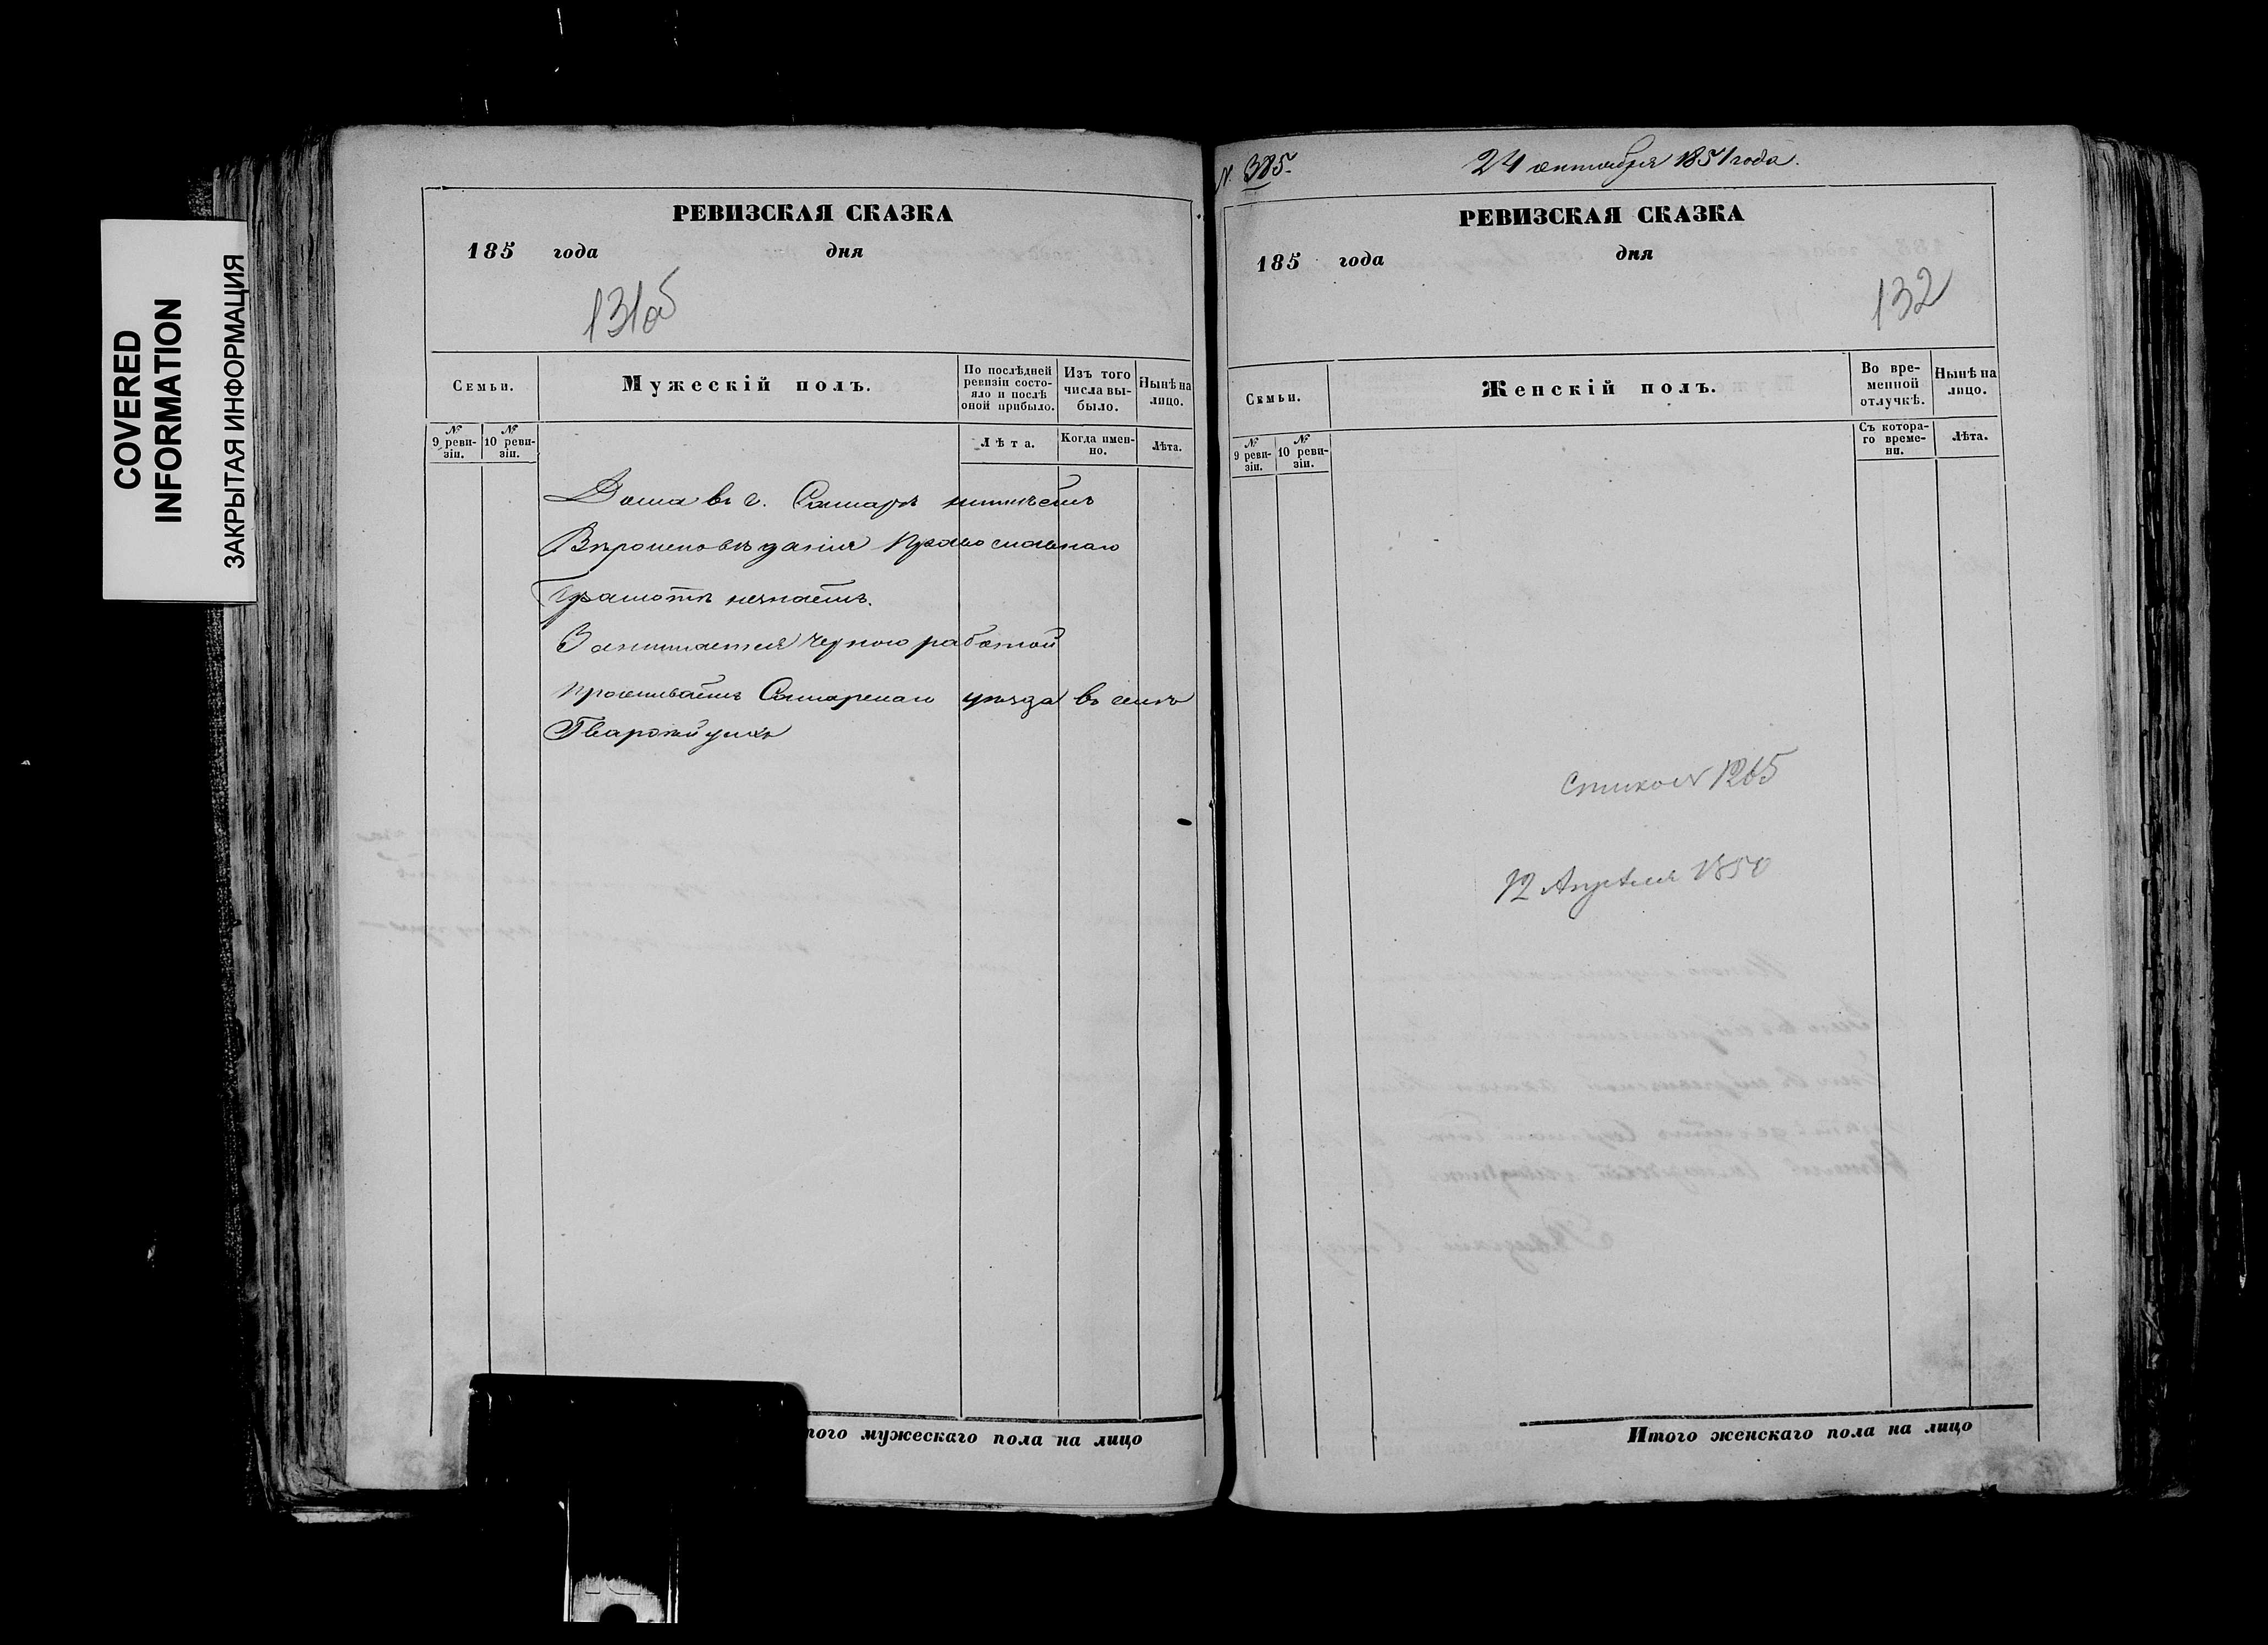 COVERED
INFORMATION
ЗАКРЫТАЯ ИНФОРМАЦИЯ
РЕВИЗСКАЯ СКАЗКА
185 года дня
131об
Семьи.
Мужескій полъ.
По послѣдней ревизіи состояло и послѣ оной прибыло.
Изъ того числа выбыло.
Нынѣ на лицо.
№ 9 ревизіи.
№ 10 ревизіи.
Лѣта.
Когда именно.
Лѣта.
Дома въ г. Самарѣ неимѣетъ
Вѣроисповѣданія Православнаго
Грамотѣ незнаетъ.
Занимается черною работой
проживаетъ Самарскаго уѣзда въ селѣ
того мужескаго пола на лицо
№ 385.
24 октября 1851 года.
РЕВИЗСКАЯ СКАЗКА
185 года дня
132
Семьи.
Женскій полъ.
Во временной отлучкѣ.
Нынѣ на лицо.
№ 9 ревизіи.
№ 10 ревизіи.
Съ котораго времени.
Лѣта.
1265
12 Апрѣля 1850
Итого женскаго пола на лицо